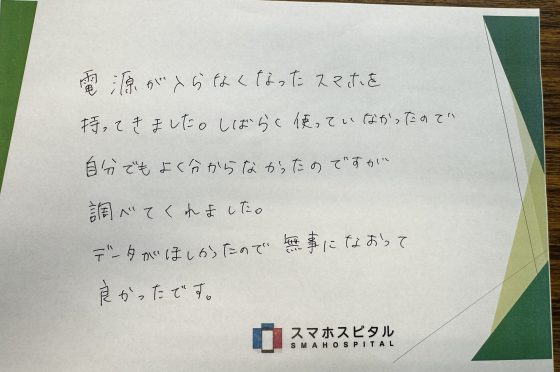 電源が入らなくなったスマホを
持ってきました。しばらく使っていなかったので
自分でもよく分からなかったのですが
調べてくれました。
データがほしかったので無事になおって
良かったです。
スマホスピタル
SMAHOSPITAL